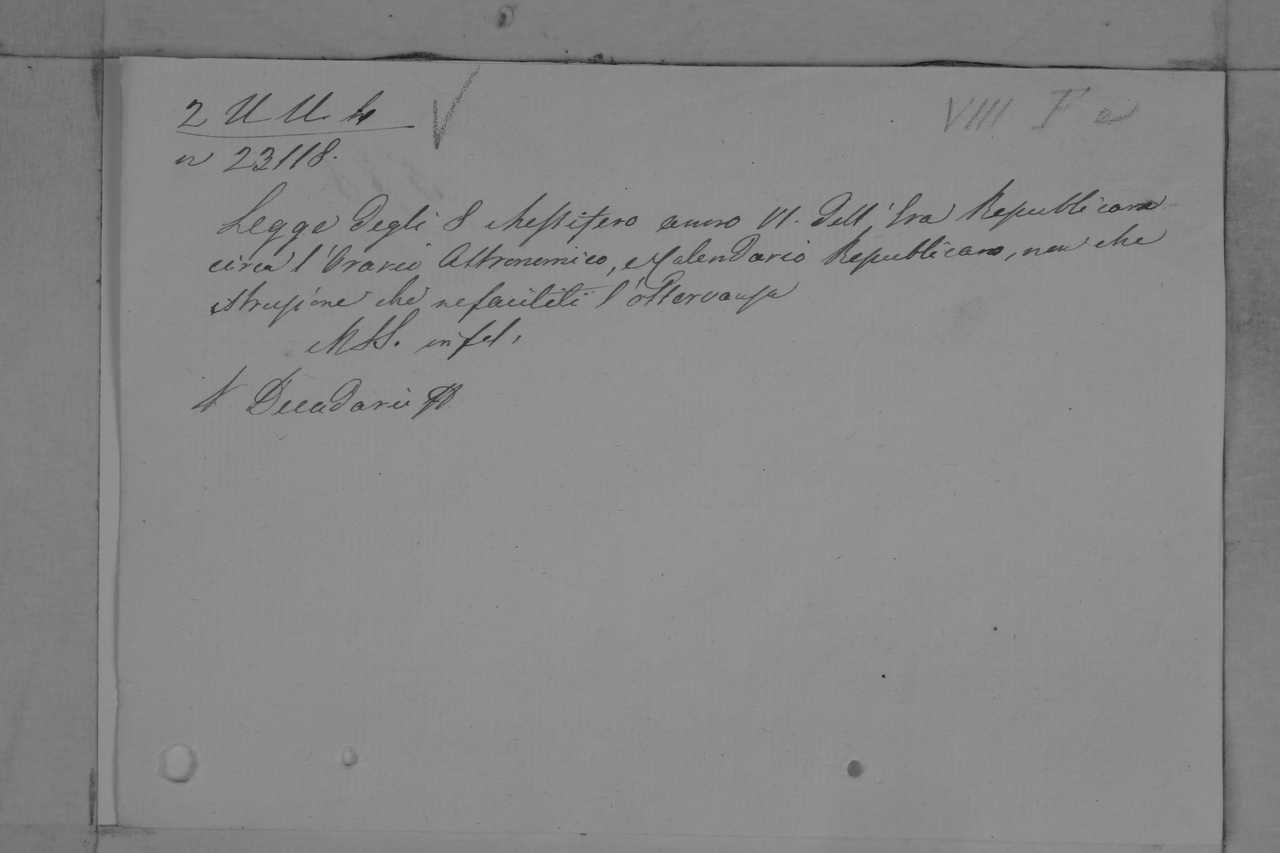 2 U U. h V VIII F a
n 23118.
Legge degli 8 Messifero anno VI. dell'Era Republicana
circa l'Orario Astronomico, e Calendario Republicano, non che
istruzione che ne faciliti l'osservanza
MSS. in fol.
Decadario